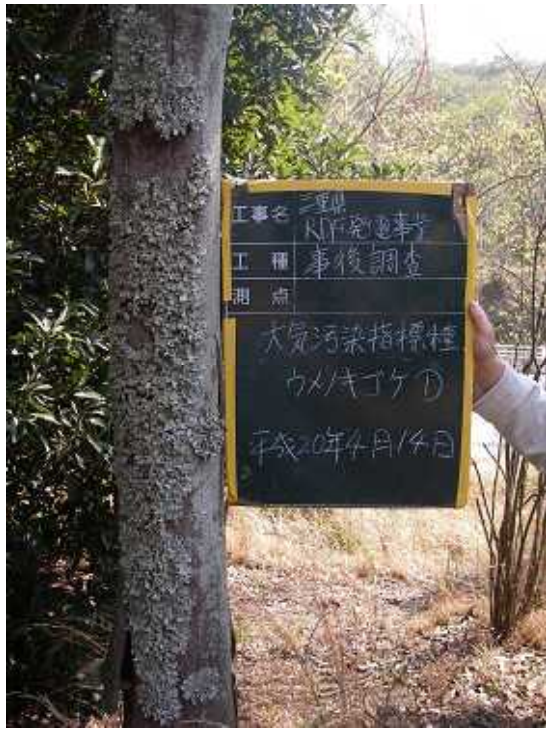 工事名 三重県
RDF発電事業
工種 事後調査
測点
大気汚染指標種
ウメノキゴケ D
平成20年4月14日